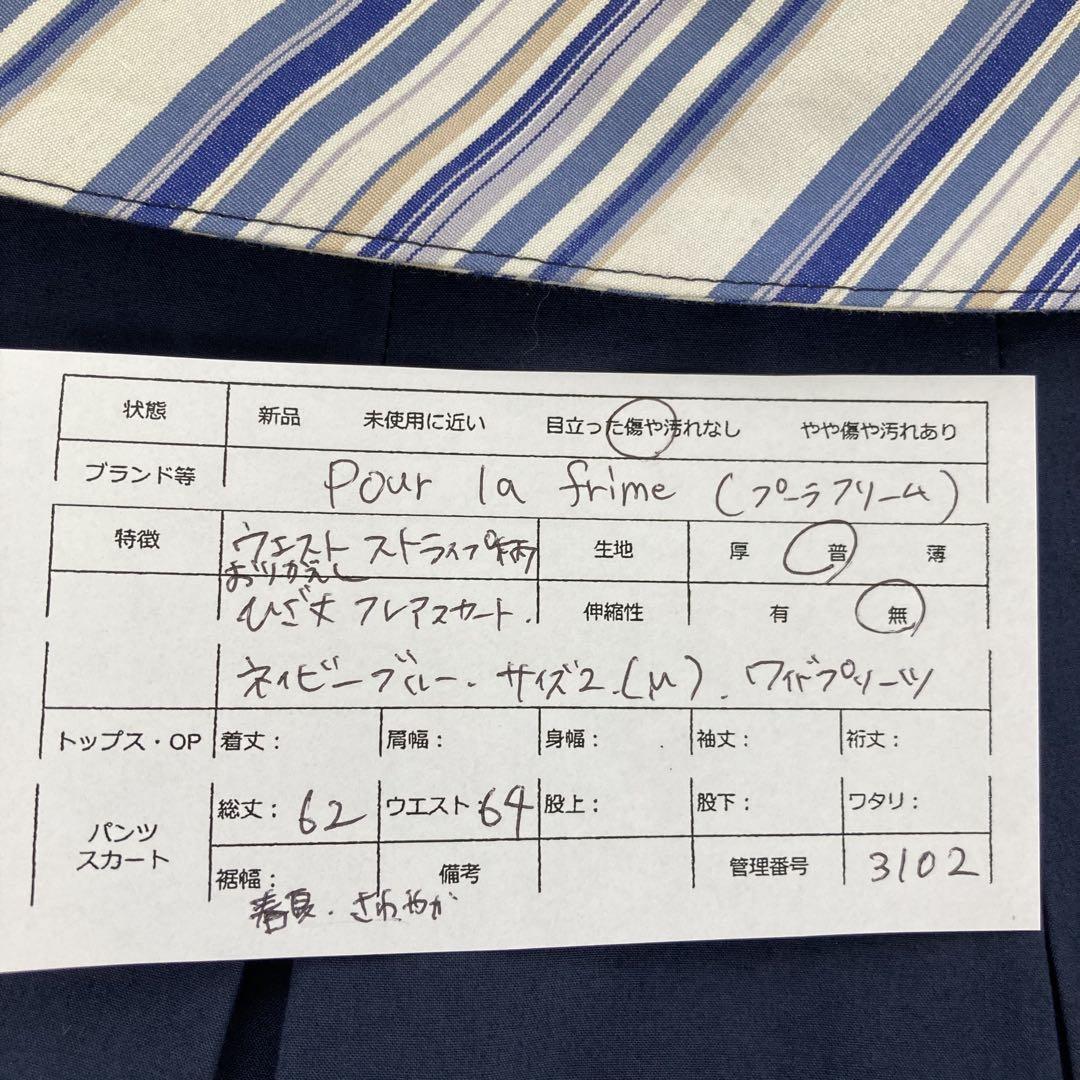 状態 新品 未使用に近い 目立った傷や汚れなし やや傷や汚れあり
ブランド等 Pour la frime (プーラフリーム)
特徴 ウエスト ストライプ柄 生地 厚 普 薄
おりかえし
ひざ丈 フレアスカート. 伸縮性 有 無
ネイビーブルー. サイズ2.(M). ワイドプリーツ
トップス・OP 着丈: 肩幅: 身幅: 袖丈: 裄丈:
パンツ スカート 総丈: 62 ウエスト: 64 股上: 股下: ワタリ:
裾幅: 備考 管理番号 3102
春夏. さわやか